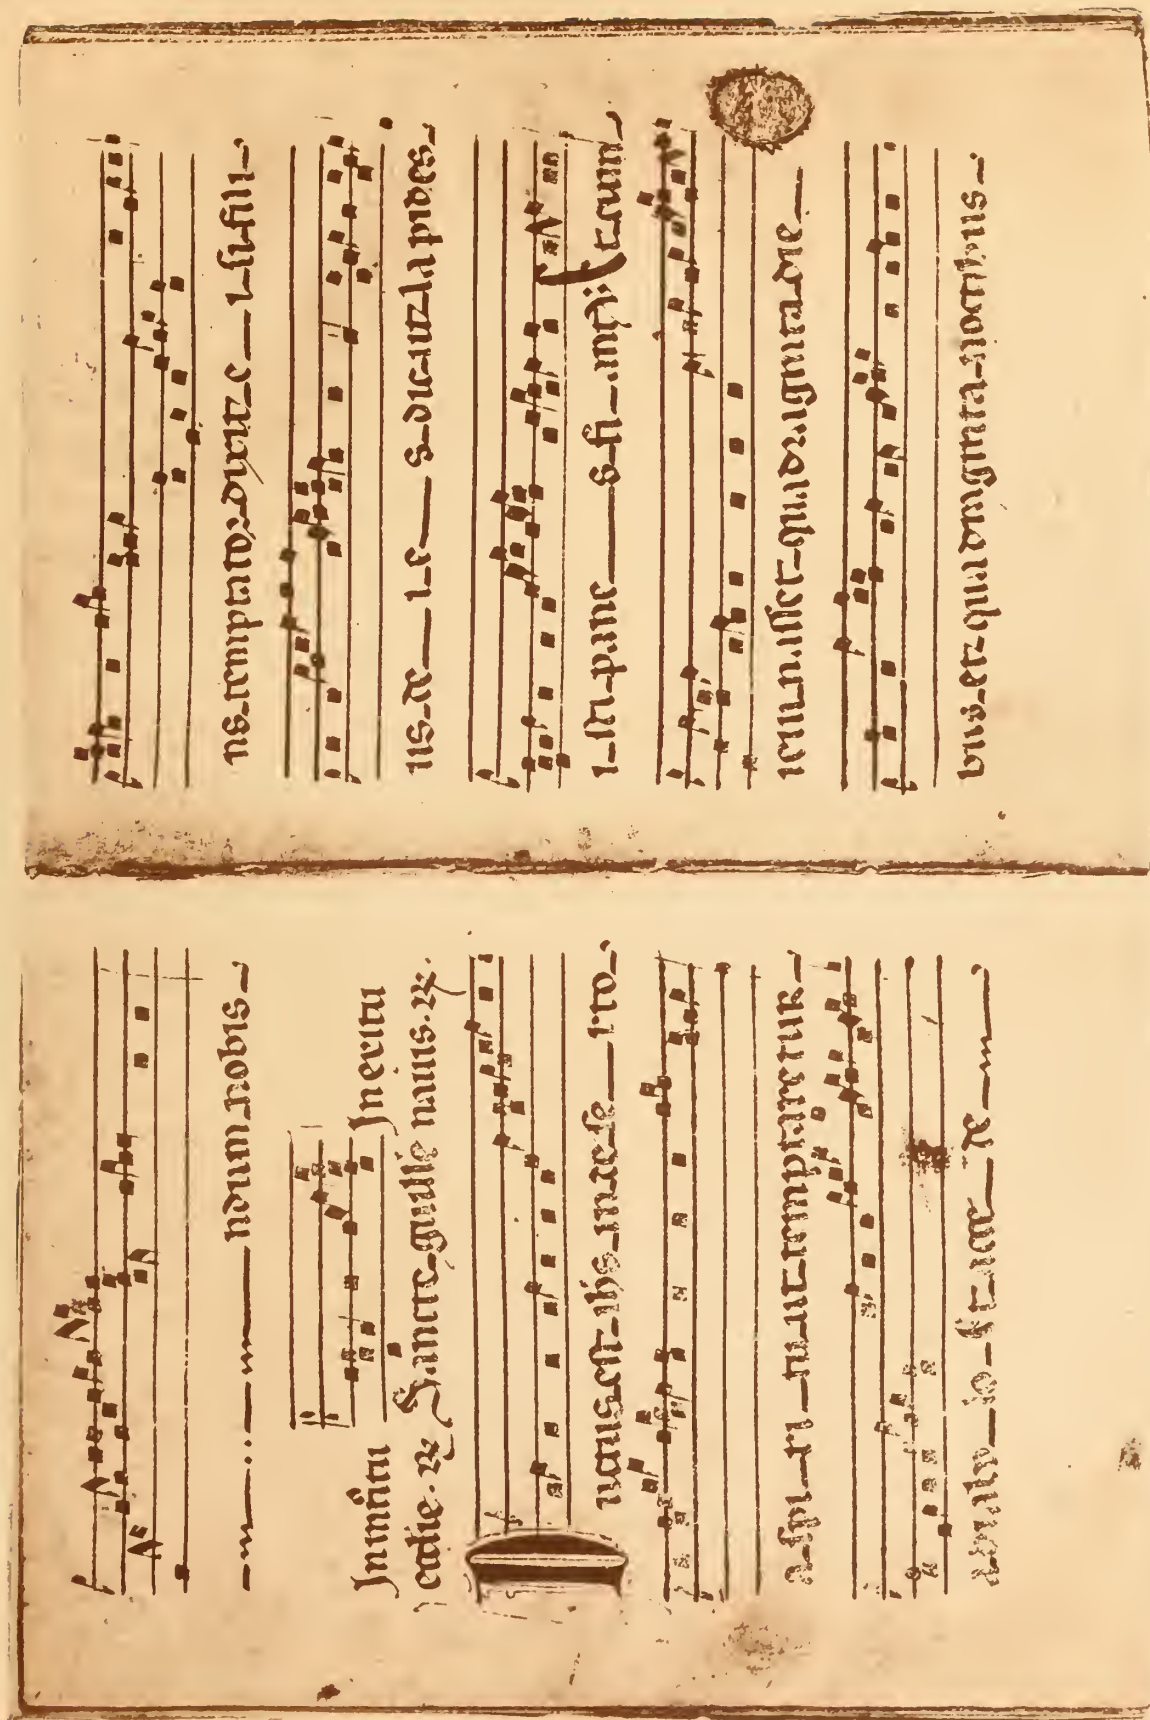 ndum nobis
In introitu In exitu
ecclie. R. Sancte guille
uctus est ihs in dese rto
a spi ri tu ut temptaretur
a dyabo lo Et acce de n
us temptator dixit e i si fili
us de i e s dic ut lapides
i sti pane s fi ant V Et cum
ieiunasset quadraginta die
bus et quadraginta noctibus